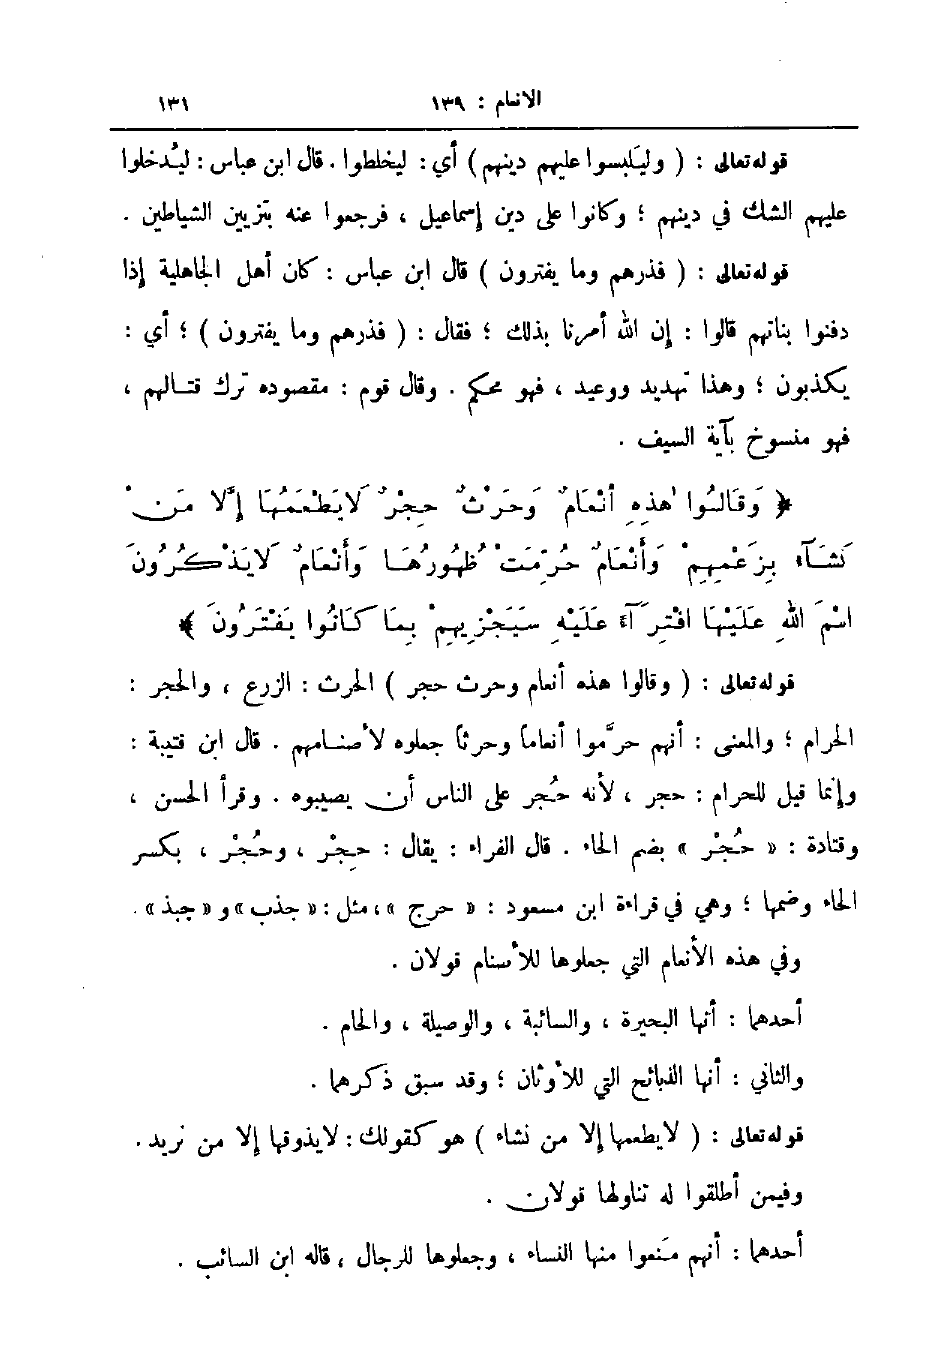 الانعام : ١٣٩ ١٣١
قوله تعالى : ( وليَلبِسوا عليهم دينهم ) أي : ليخلطوا . قال ابن عباس : ليُدخلوا
عليهم الشك في دينهم ؛ وكانوا على دين إسماعيل ، فرجعوا عنه بتزيين الشياطين .
قوله تعالى : ( فذرهم وما يفترون ) قال ابن عباس : كان أهل الجاهلية إذا
دفنوا بناتهم قالوا : إن الله أمرنا بذلك ؛ فقال : ( فذرهم وما يفترون ) ؛ أي :
يكذبون ؛ وهذا تهديد ووعيد ، فهو محكم . وقال قوم : مقصوده ترك قتالهم ،
فهو منسوخ بآية السيف .
﴿ وَقَالُوا هٰذِهِ أَنْعَامٌ وَحَرْثٌ حِجْرٌ لَا يَطْعَمُهَا إِلَّا مَنْ
نَشَآءُ بِزَعْمِهِمْ وَأَنْعَامٌ حُرِّمَتْ ظُهُورُهَا وَأَنْعَامٌ لَا يَذْكُرُونَ
اسْمَ اللهِ عَلَيْهَا افْتِرَآءً عَلَيْهِ سَيَجْزِيهِمْ بِمَا كَانُوا يَفْتَرُونَ ﴾
قوله تعالى : ( وقالوا هذه أنعام وحرث حجر ) الحرث : الزرع ، والحجر :
الحرام ؛ والمعنى : أنهم حرَّموا أنعاماً وحرثاً جعلوه لأصنامهم . قال ابن قتيبة :
وإنما قيل للحرام : حجر ، لأنه حُجر على الناس أن يصيبوه . وقرأ الحسن ،
وقتادة : « حُجْر » بضم الحاء . قال الفراء : يقال : حِجْر ، وحُجْر ، بكسر
الحاء وضمها ؛ وهي في قراءة ابن مسعود : « حرج » ، مثل : « جذب » و « جبذ » .
وفي هذه الأنعام التي جعلوها للأصنام قولان .
أحدهما : أنها البحيرة ، والسائبة ، والوصيلة ، والحام .
والثاني : أنها الذبائح التي للأوثان ؛ وقد سبق ذكرهما .
قوله تعالى : ( لا يطعمها إلا من نشاء ) هو كقولك : لا يذوقها إلا من نريد .
وفيمن أطلقوا له تناولها قولان .
أحدهما : أنهم مَنعوا منها النساء ، وجعلوها للرجال ، قاله ابن السائب .